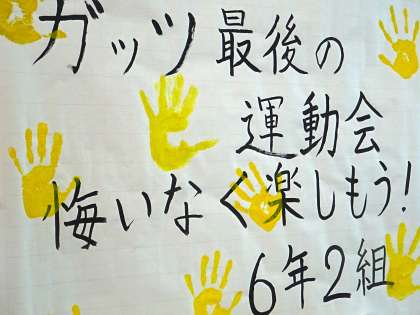 ガッツ最後の
運動会
悔いなく楽しもう!
6年2組